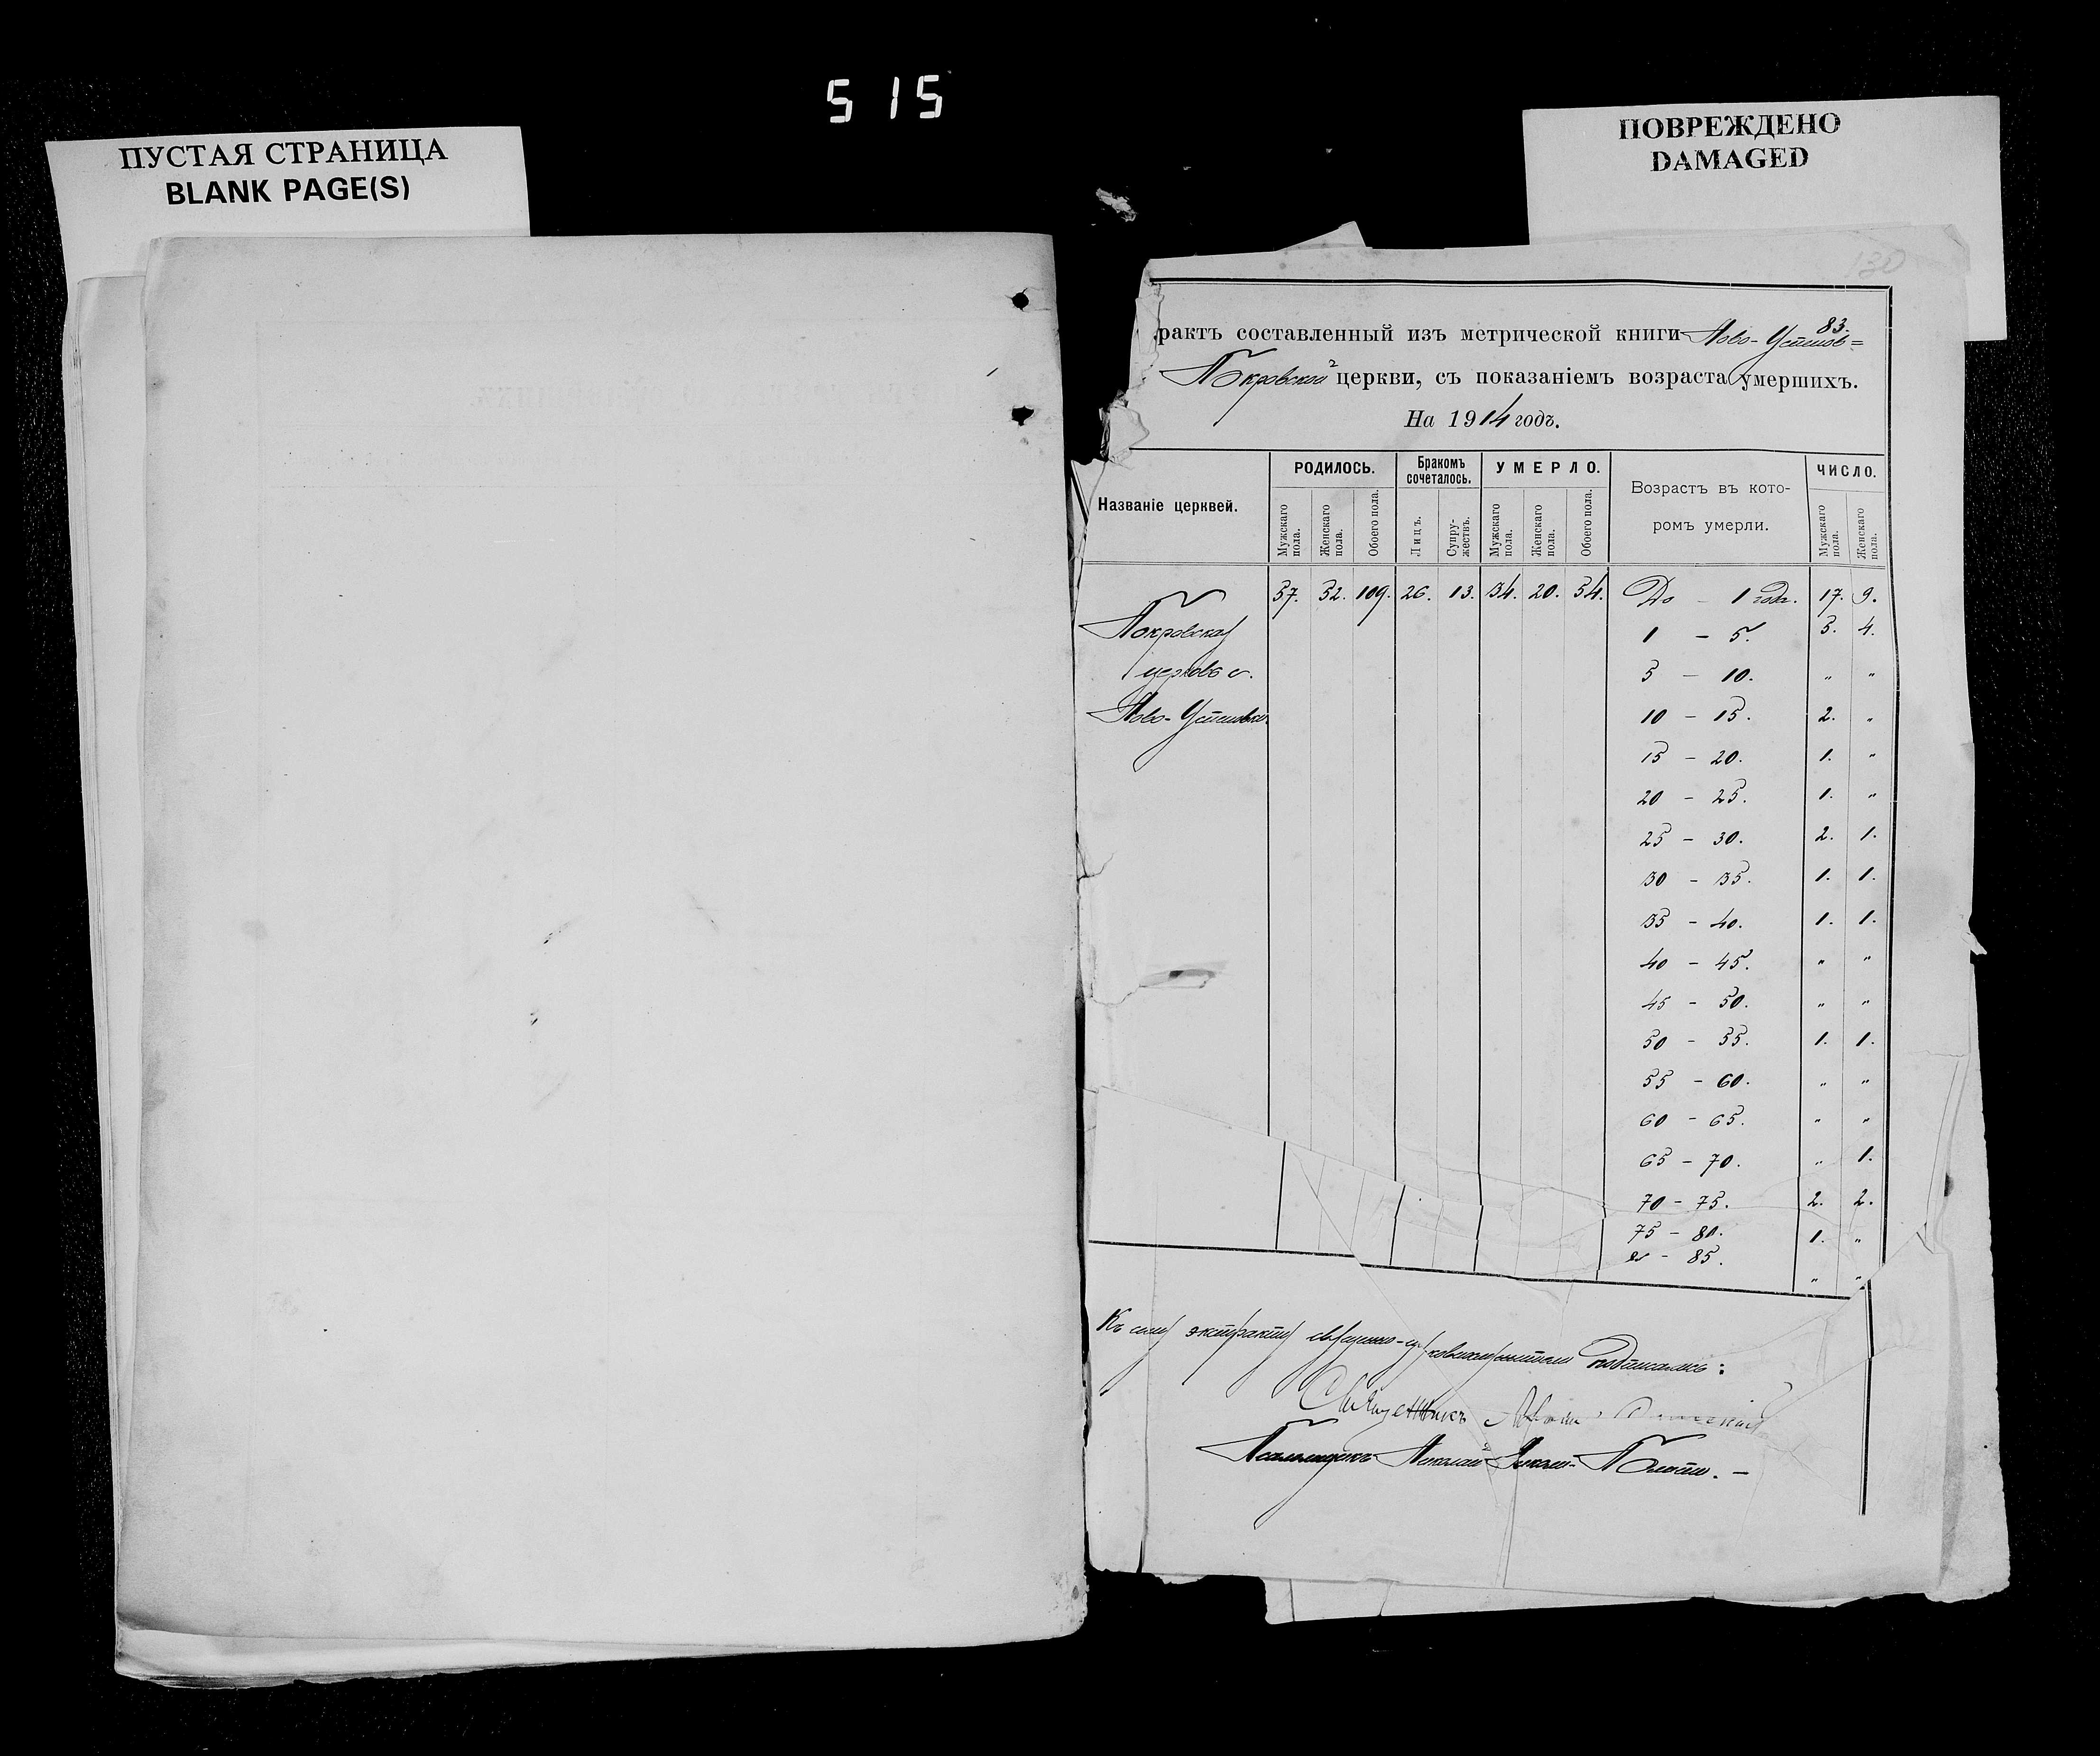 515
ПУСТАЯ СТРАНИЦА
BLANK PAGE(S)
ПОВРЕЖДЕНО
DAMAGED
130
83.
рактъ составленный изъ метрической книги Ново-
Покровской церкви, съ показаніемъ возраста умершихъ.
На 1914 годъ.
Названіе церквей.
РОДИЛОСЬ.
Бракомъ сочеталось.
УМЕРЛО.
Возрастъ въ кото-
ромъ умерли.
ЧИСЛО.
Мужскаго пола. Женскаго пола. Обоего пола. Лицъ. Супру-жествъ. Мужскаго пола. Женскаго пола. Обоего пола. Мужскаго пола. Женскаго пола.
57. 52. 109. 26. 13. 34. 20. 54. До - 1 года. 17. 9.
Покровская
церковь с.
Ново-
1 - 5. 5. 4.
5 - 10. " "
10 - 15. 2. "
15 - 20. 1. "
20 - 25. 1. "
25 - 30. 2. 1.
30 - 35. 1. 1.
35 - 40. 1. 1.
40 - 45. " "
45 - 50. " "
50 - 55. 1. 1.
55 - 60. " "
60 - 65. " "
65 - 70. " 1.
70 - 75. 2. 2.
75 - 80. 1. "
80 - 85. " "
Къ сему экстракту подписались:
Священникъ
Псаломщикъ Николай